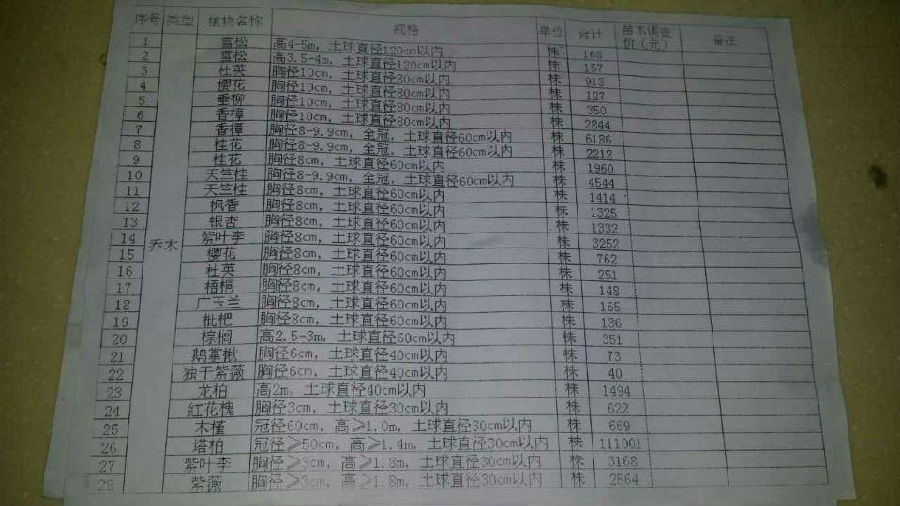 序号 类型 植物名称 规格 单位 合计 苗木调查价(元) 备注
1 雪松 高4-5m，土球直径120cm以内 株 163
2 雪松 高3.5-4m，土球直径120cm以内 株 157
3 杜英 胸径10cm，土球直径80cm以内 株 913
4 樱花 胸径10cm，土球直径80cm以内 株 127
5 垂柳 胸径10cm，土球直径80cm以内 株 350
6 香樟 胸径10cm，土球直径80cm以内 株 2844
7 香樟 胸径8-9.9cm，全冠，土球直径60cm以内 株 6186
8 桂花 胸径8-9.9cm，全冠，土球直径60cm以内 株 2212
9 桂花 胸径8cm，土球直径60cm以内 株 1960
10 天竺桂 胸径8-9.9cm，全冠，土球直径60cm以内 株 4544
11 天竺桂 胸径8cm，土球直径60cm以内 株 1414
12 枫香 胸径8cm，土球直径60cm以内 株 1325
13 银杏 胸径8cm，土球直径60cm以内 株 1332
14 乔木 紫叶李 胸径8cm，土球直径60cm以内 株 3252
15 樱花 胸径8cm，土球直径60cm以内 株 762
16 杜英 胸径8cm，土球直径60cm以内 株 251
17 梧桐 胸径8cm，土球直径60cm以内 株 148
18 广玉兰 胸径8cm，土球直径60cm以内 株 155
19 枇杷 胸径8cm，土球直径60cm以内 株 136
20 棕榈 高2.5-3m，土球直径60cm以内 株 351
21 鹅掌楸 胸径6cm，土球直径40cm以内 株 73
22 独干紫薇 胸径6cm，土球直径40cm以内 株 40
23 龙柏 高2m，土球直径40cm以内 株 1494
24 红花槐 胸径3cm，土球直径30cm以内 株 622
25 木槿 冠径60cm，高≥1.0m，土球直径30cm以内 株 669
26 塔柏 冠径≥50cm，高≥1.4m，土球直径30cm以内 株 111001
27 紫叶李 胸径≥3cm，高≥1.8m，土球直径30cm以内 株 3168
28 紫薇 胸径≥3cm，高≥1.8m，土球直径30cm以内 株 2564